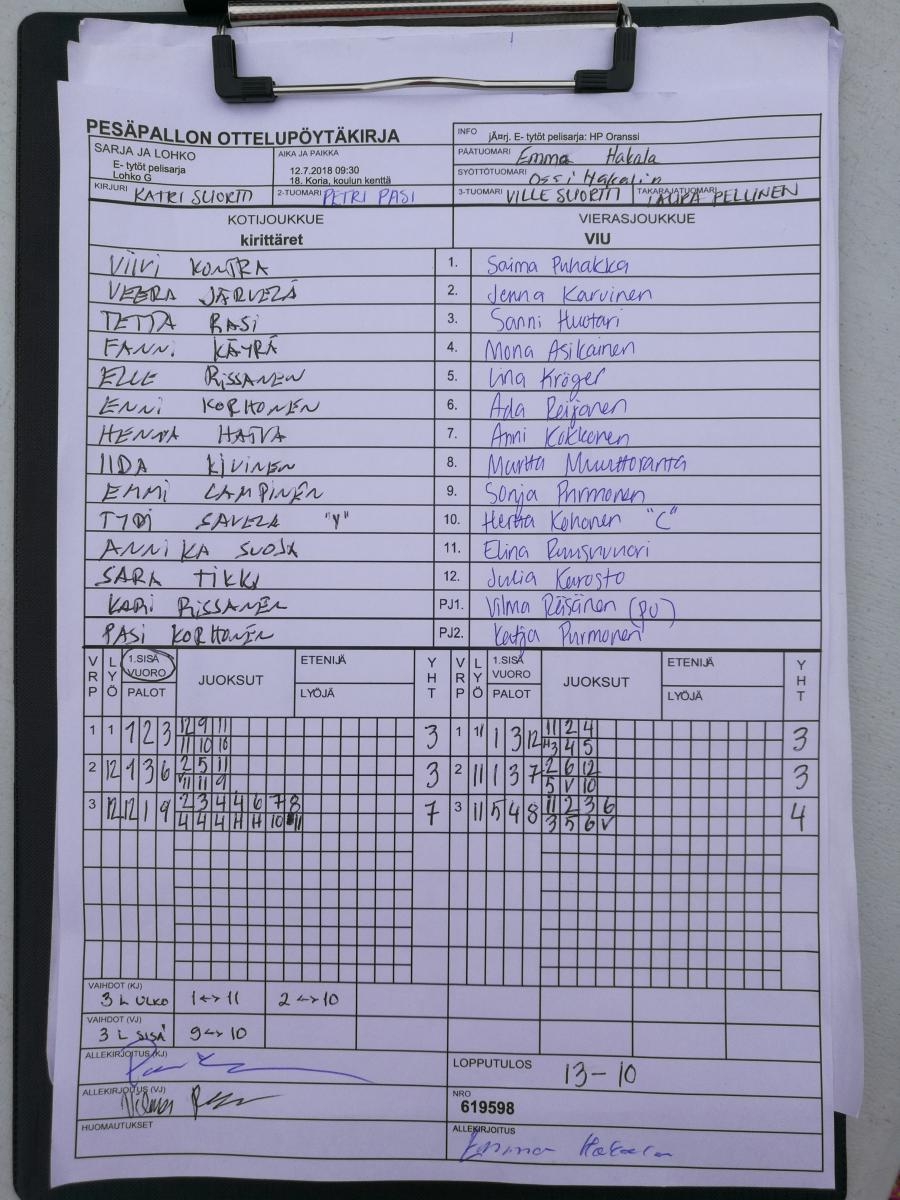 PESÄPALLON OTTELUPÖYTÄKIRJA
INFO jÃ¤rj. E- tytöt pelisarja: HP Oranssi
SARJA JA LOHKO
E- tytöt pelisarja
Lohko G
AIKA JA PAIKKA
12.7.2018 09:30
18. Koria, koulun kenttä
PÄÄTUOMARI Emma Hakala
SYÖTTÖTUOMARI Ossi Hakalin
KIRJURI KATRI SUORTTI 2-TUOMARI PETRI PASI 3-TUOMARI VILLE SUORTTI TAKARAJATUOMARI LAURA PELLINEN
KOTIJOUKKUE VIERASJOUKKUE
kirittäret VIU
VIIVI KONTRA 1. Saima Puhakka
VEERA JÄRVELÄ 2. Jenna Karvinen
TETTA RASI 3. Sanni Huotari
FANNI KÄYRÄ 4. Mona Asikainen
ELLE RISSANEN 5. Iina Kröger
ENNI KORHONEN 6. Ada Reijonen
HENNA HATVA 7. Anni Kokkonen
IIDA KIVINEN 8. Martta Muuttoranta
EMMI LAMPINEN 9. Sonja Purmonen
SAVELA "V" 10. Hertta Kohonen "C"
ANNIKA SUOJA 11. Elina Ruusuvuori
SARA TIKKI 12. Julia Kurosto
KARI RISSANEN PJ1. Vilma Räisänen (PU)
PASI KORHONEN PJ2. Katja Purmonen
VRP LYÖ 1.SISÄ VUORO PALOT JUOKSUT ETENIJÄ LYÖJÄ YHT VRP LYÖ 1.SISÄ VUORO PALOT JUOKSUT ETENIJÄ LYÖJÄ YHT
1 1 1 2 3 12 9 11 3 1 1 1 3 12 11 2 4 3
11 10 10 3 4 5
2 12 1 3 6 2 5 11 3 2 11 1 3 7 2 6 12 3
V 11 11 9 5 V 10
3 12 12 1 9 2 3 4 4 6 7 8 7 3 11 5 4 8 11 2 3 6 4
4 4 4 H H 10 11 3 5 6 V
VAIHDOT (KJ)
3 L ULKO 1<->11 2<->10
VAIHDOT (VJ)
3 L SISÄ 9<->10
ALLEKIRJOITUS (KJ)
LOPPUTULOS 13-10
ALLEKIRJOITUS (VJ)
NRO
619598
HUOMAUTUKSET
ALLEKIRJOITUS
Emma Hakala